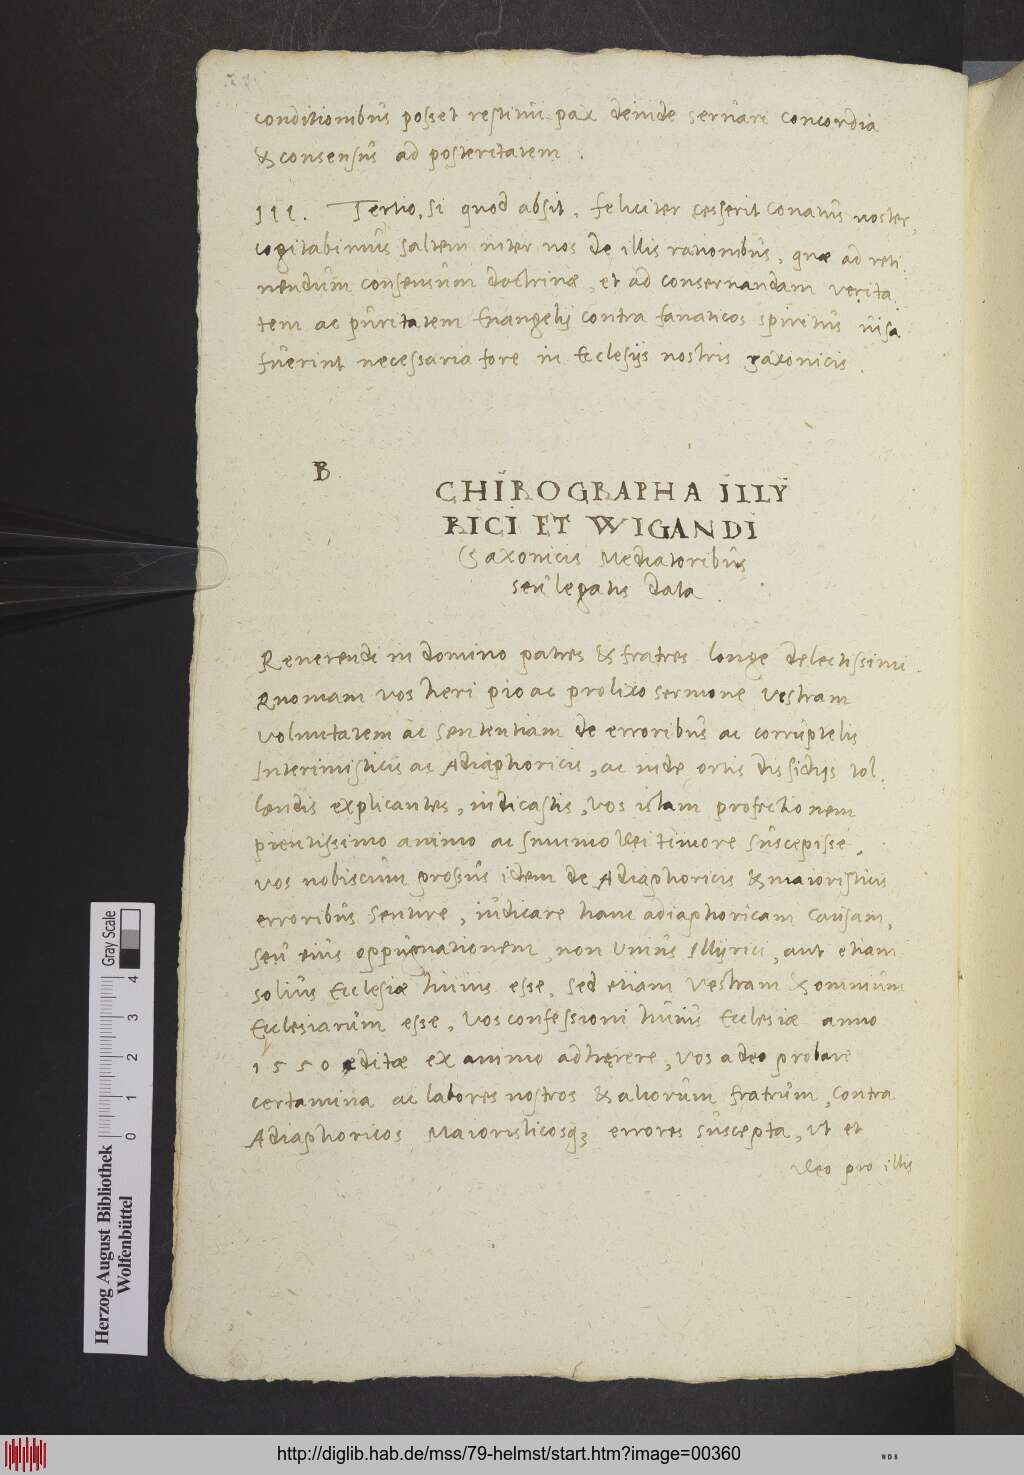 conditionibus posset restitui pax deinde seruari concordia
& consensus ad posteritatem.
III. Tertio, si quod absit, feliciter cesserit conatus noster,
cogitabimus saltem inter nos de illis rationibus, quæ ad reti
nendum consensum doctrinæ, et ad conseruandam verita
tem ac puritatem Euangelij contra fanaticos spiritus uisa
fuerint necessaria fore in Ecclesijs nostris saxonicis.
B
CHIROGRAPHA ILLY
RICI ET WIGANDI
Saxonicis Mediatoribus
seu legatis data.
Reuerendi in domino patres & fratres longe delectissimi.
Quoniam vos heri pio ac prolixo sermone vestram
voluntatem ac sententiam de erroribus ac corruptelis
Interimisticis ac Adiaphoricis, ac inde ortis dissidijs tol
lendis explicantes, indicastis, vos istam profectionem
pientissimo animo ac summo Dei timore suscepisse,
vos nobiscum prossus idem de Adiaphoricis & maioristicis
erroribus sentire, iudicare hanc adiaphoricam causam,
seu eius oppugnationem, non unius Illyrici, aut etiam
solius Ecclesiæ huius esse, sed etiam vestram & omnium
Ecclesiarum esse, vos confessioni huius Ecclesiæ anno
1550 editæ ex animo adhęrere, vos adeo probare
certamina ac labores nostros & aliorum fratrum, contra
Adiaphoricos Maioristicosq3 errores suscepta, ut et
Deo pro illis
Gray Scale
0 1 2 3 4
Herzog August Bibliothek
Wolfenbüttel
http://diglib.hab.de/mss/79-helmst/start.htm?image=00360